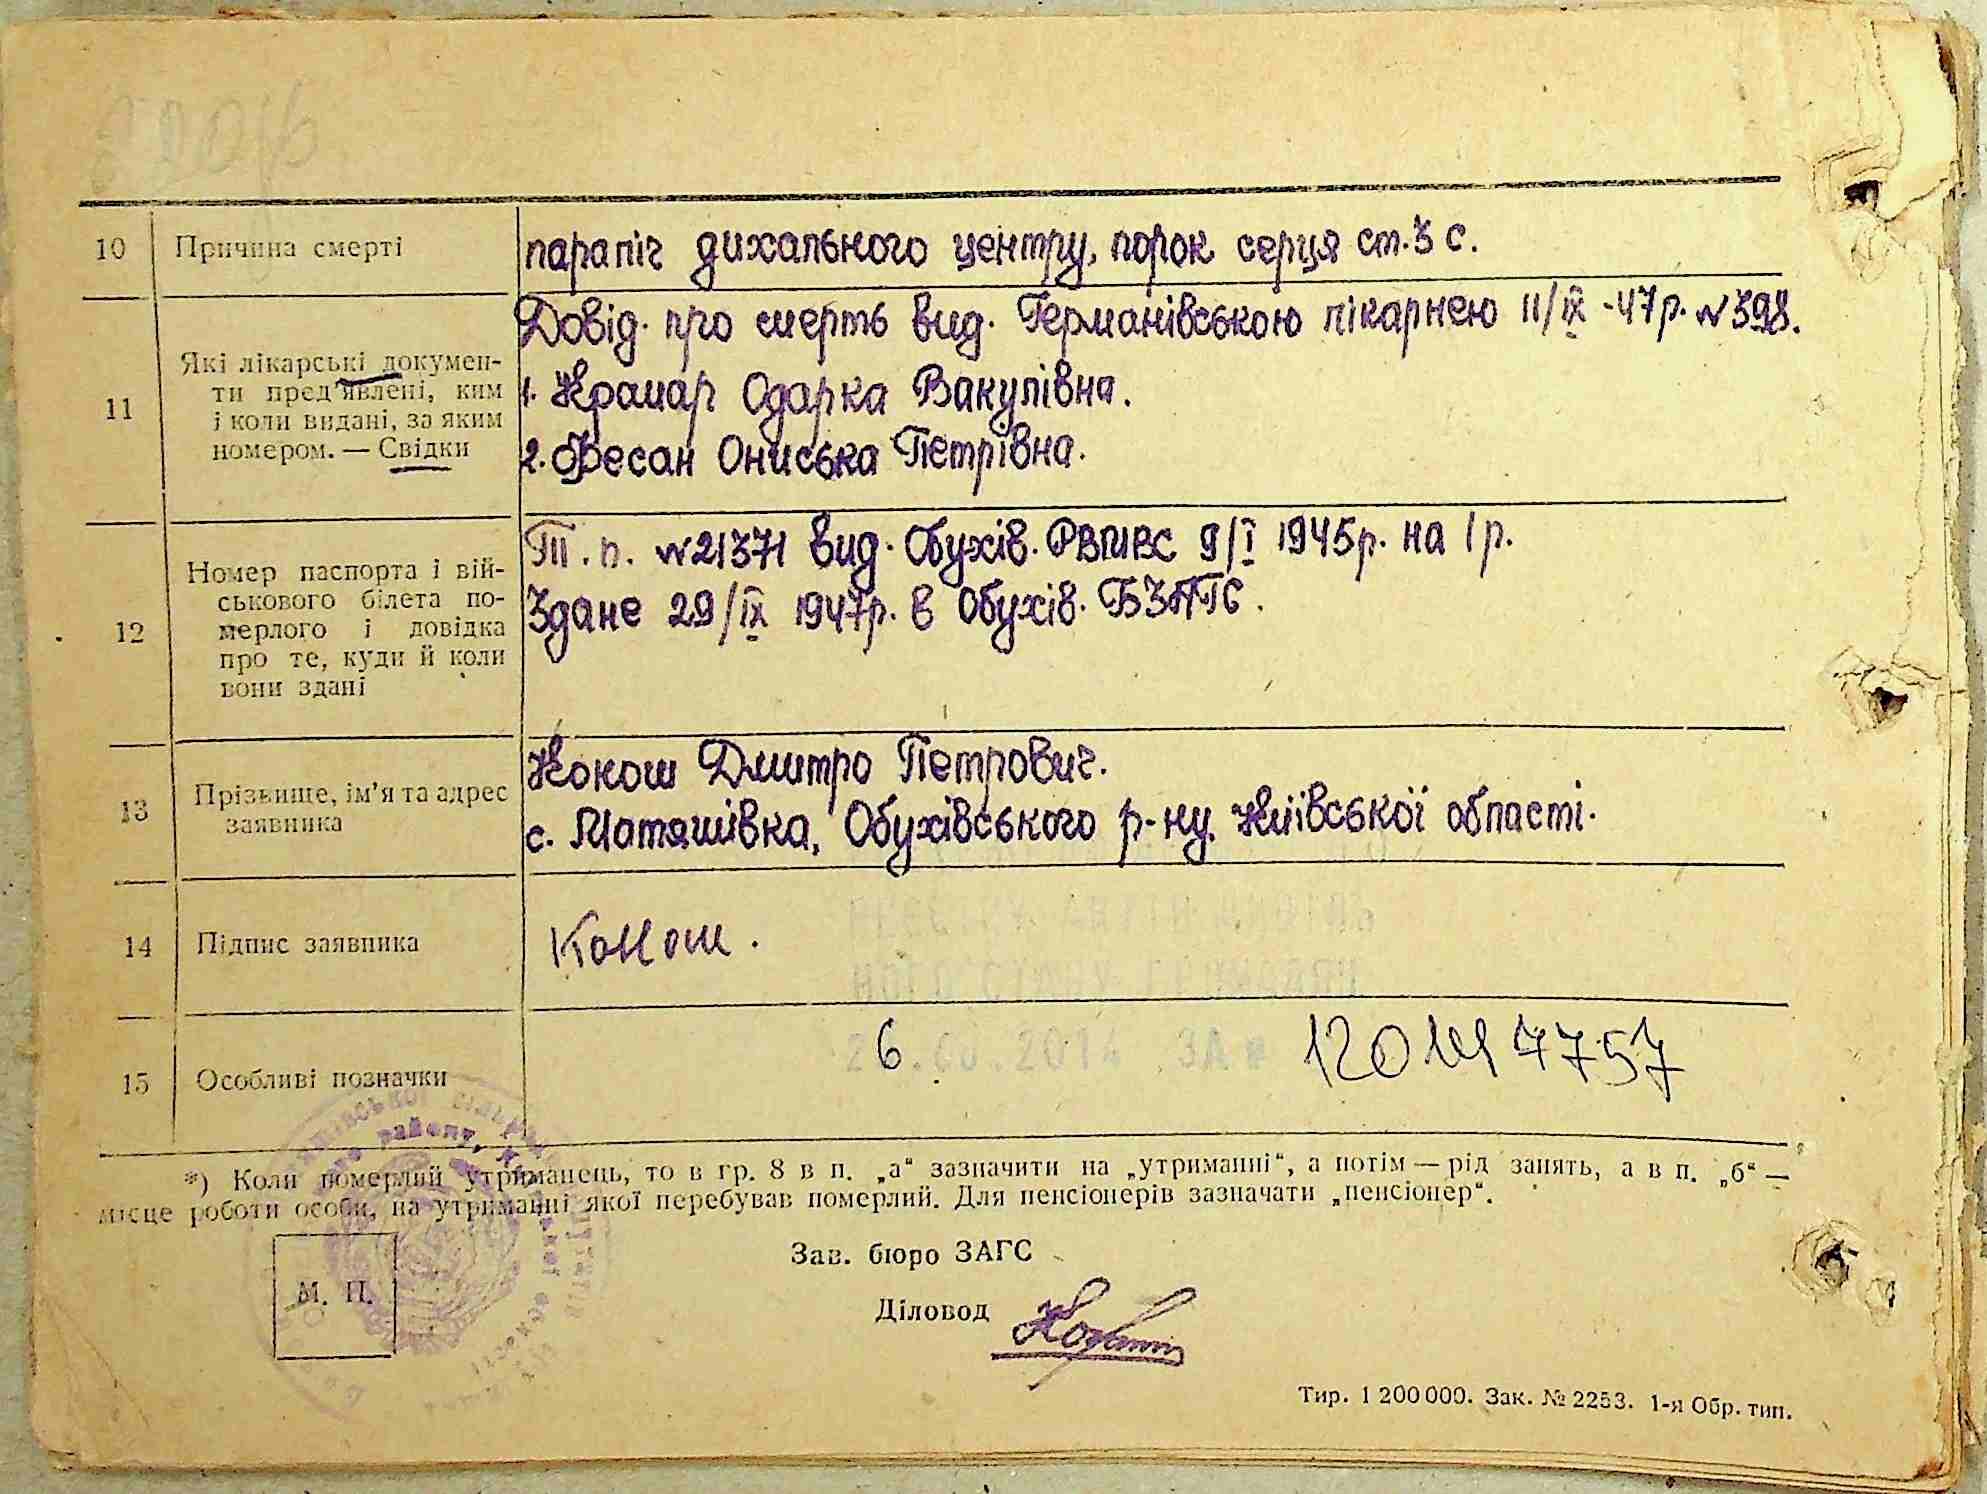 10 Причина смерті
параліч дихального центру, порок серця ст. 3 с.
11 Які лікарські докумен-
ти пред'явлені, ким
і коли видані, за яким
номером. — Свідки
Довід. про смерть вид. Германівською лікарнею 11/IX -47р. №398.
1. Крамар Одарка Вакулівна.
2. Фесан Ониська Петрівна.
12 Номер паспорта і вій-
ськового білета по-
мерлого і довідка
про те, куди й коли
вони здані
Т.п. №21371 вид. Обухів. РВМВС 9/I 1945р. на 1 р.
Здане 29/IX 1947р. в Обухів. БЗАГС.
13 Прізвище, ім'я та адрес
заявника
Кокош Дмитро Петрович.
с. Матяшівка, Обухівського р-ну, Київської області.
14 Підпис заявника
Кокош.
15 Особливі позначки
26. .2014 ЗА №
*) Коли померлий утриманець, то в гр. 8 в п. „а“ зазначити на „утриманні“, а потім — рід занять, а в п. „б“ —
місце роботи особи, на утриманні якої перебував померлий. Для пенсіонерів зазначати „пенсіонер“.
Зав. бюро ЗАГС
М. П.
Діловод
Тир. 1 200 000. Зак. № 2253. 1-я Обр. тип.